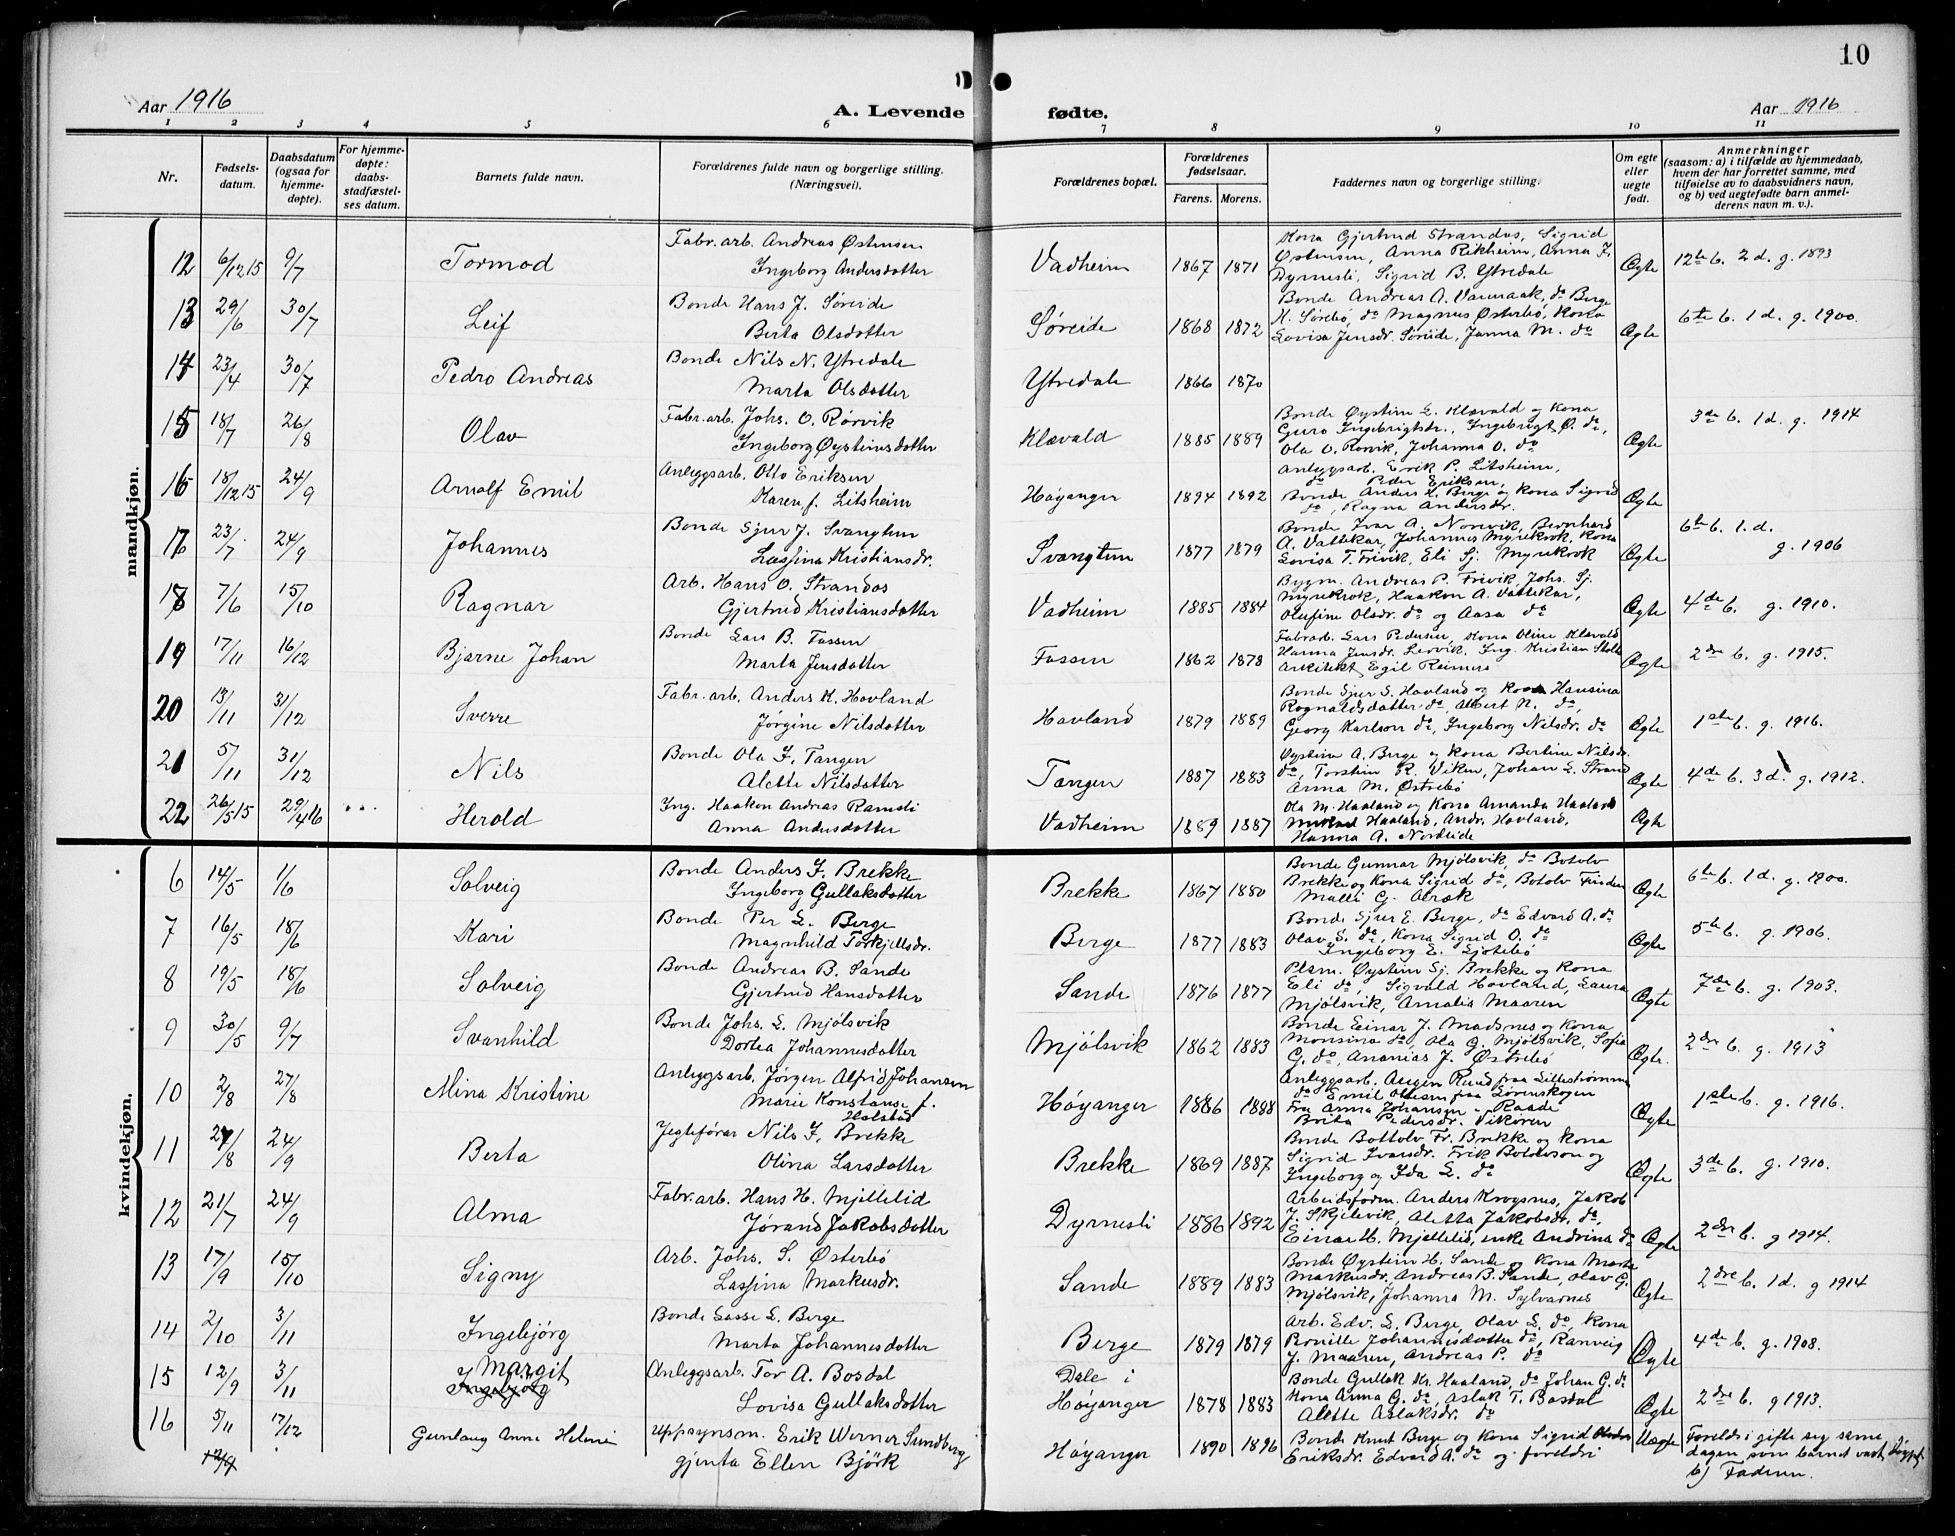 10
Aar 1916
A. Levende fødte.
Aar 1916
1 2 3 4 5 6 7 8 9 10 11
Nr.
Fødsels-
datum.
Daabsdatum
(ogsaa for
hjemme-
døpte).
For hjemme-
døpte:
daabs-
stadfæstel-
ses datum.
Barnets fulde navn.
Forældrenes fulde navn og borgerlige stilling.
(Næringsvei).
Forældrenes bopæl.
Forældrenes
fødselsaar.
Farens. Morens.
Faddernes navn og borgerlige stilling.
Om egte
eller
uegte
født.
Anmerkninger
(saasom: a) i tilfælde av hjemmedaab,
hvem der har forrettet samme, med
tilføielse av to daabsvidners navn,
og b) ved uegtefødte barn anmel-
derens navn m. v.).
mandkjøn.
12 6/12 15 9/7 Tormod Fabr. arb. Andreas Østensen
Ingeborg Andersdotter
Vadheim 1867 1871
Kona Gjertrud Strandos, Sigrid
Østensen, Anna Rikheim, Anna J.
Dyrnesli, Sigrid B. Ytredale
Ægte 12te b. 2 d. g. 1893
13 29/6 30/7 Leif Bonde Hans J. Søreide
Berta Olsdotter
Søreide 1868 1872
Bonde Andreas A. Varmaak, do Berge
H. Sørebø do Magnus Østerbø, Kona
Lovisa Jensdr. Søreide, Janna M. do
Ægte 6te b. 1 d. g. 1900.
14 23/4 30/7 Pedro Andreas Bonde Nils N. Ytredale
Marta Olsdotter
Ytredale 1866 1870
15 18/7 26/8 Olav Fabr. arb. Johs. O. Rørvik
Ingeborg Øysteinsdotter
Klævald 1885 1889
Bonde Øystein L. Klævald og Kona
Guro Ingebrigtsdr., Ingebrigt Ø. do,
Ola O. Rørvik, Johanna O. do
Ægte 3de b. 1 d. g. 1914
16 18/12 15 24/9 Arnolf Emil Anleggsarb. Otto Eriksen
Karen f. Litsheim
Høyanger 1894 1892
Anleggsarb. Erik P. Litsheim,
do Peder Eriksen,
Bonde Anders H. Berge og Kona Sigrid
do, Ragna Andersdr.
Ægte
17 23/7 24/9 Johannes Bonde Sjur J. Svangtun
Lassina Kristiansdr.
Svangtun 1877 1879
Bonde Ivar A. Norevik, Bernhard
A. Vattekar, Johannes Myrekrok, Kona
Lovisa T. Frivik, Eli Sj. Myrekrok
Ægte 6te b. 1. d.
g. 1906
18 7/6 15/10 Ragnar Arb. Hans O. Strandos
Gjertrud Kristiansdotter
Vadheim 1885 1884
Bygm. Andreas P. Frivik, Johs. Sj.
Myrekrok, Haakon A. Vattekar,
Olufine Olsdr. do og Aasa do
Ægte 4de b. g. 1910.
19 17/11 16/12 Bjarne Johan Bonde Lars B. Fossen
Marta Jensdotter
Fossen 1862 1878
Fabrarb. Lars Pedersen, Kona Oline Klævald
Hanna Jensdr. Lervik, Ing. Kristian Stolt
Arkitekt Egil Reimers
Ægte 2dre b. g. 1915.
20 13/11 31/12 Sverre Fabr. arb. Anders K. Hovland
Jørgine Nilsdotter
Hovland 1879 1889
Bonde Sjur S. Hovland og Kona Hansina
Rognaldsdotter do, Albert N. do,
Georg Karlson do, Ingeborg Nilsdr. do
Ægte 1ste b. g. 1916.
21 5/11 31/12 Nils Bonde Ola J. Tangen
Alette Nilsdotter
Tangen 1887 1883
Øystein A. Berge og Kona Bertine Nilsdr.
do, Torstein R. Viken, Johan L. Strand
Anna M. Østrebø
Ægte 4de b. 3 d. g. 1912.
22 26/5 15 29/4 16 Herold Ing. Haakon Andreas Ramsli
Anna Andersdotter
Vadheim 1889 1887
Ola M. Haaland og Kona Amanda Haaland
Mikal Haaland, Andr. Hovland,
Hanna A. Nordeide
Ægte
kvindekjøn.
6 14/5 1/6 Solveig Bonde Anders J. Brekke
Ingeborg Gullaksdotter
Brekke 1867 1880
Bonde Gunnar Mjølsvik, do Botolv
Brekke og Kona Sigrid do, Botolv Finden
Malli G. Obræk
Ægte 6te b. 1 d. g. 1900.
7 16/5 18/6 Kari Bonde Per L. Berge
Magnhild Torkjellsdr.
Berge 1877 1883
Bonde Sjur E. Berge, do Edvard A. do
Olav S. do, Kona Sigrid O. do
Ingeborg E. Sjøtebø
Ægte 5te b. g. 1906.
8 19/5 18/6 Solveig Bonde Andreas B. Sande
Gjertrud Hansdotter
Sande 1876 1877
Plsm. Øystein Sj. Brekke og Kona
Eli do, Sigvald Hovland, Laura
Mjølsvik, Amalia Maaren
Ægte 7de b. g. 1903.
9 30/5 9/7 Svanhild Bonde Johs. L. Mjølsvik
Dortea Johannesdotter
Mjølsvik 1862 1883
Bonde Einar J. Madsnes og Kona
Monsina do, Ola G. Mjølsvik, Sofia
G. do, Ananias J. Østrebø
Ægte. 2dre b. g. 1913
10 2/8 27/8 Mina Kristine Anleggsarb. Jørgen Alfrid Johansen
Marie Konstanse f.
Holstad
Høyanger 1886 1888
Anleggsarb. Augen Rund fraa Lillestrømmen
do Emil Ottesen fraa Lørenskogen
Fru Anna Johansen " Raade
Brita Pedersdr. Vikøren
Ægte 1ste b. g. 1916.
11 27/8 24/9 Berta Jegtefører Nils J. Brekke
Olina Larsdotter
Brekke 1869 1887
Bonde Bottolv Fr. Brekke og Kona
Sigrid Ivarsdr. Frik Botolvson og
Ingeborg og Ida L. do
Ægte 3de b. g. 1910.
12 21/7 24/9 Alma Fabr. arb. Hans H. Mjellelid
Jørand Jakobsdotter
Dyrnesli 1886 1892
Arbeidsform. Anders Krogsnes, Jakob
J. Skjelevik, Aletta Jakobsdr. do,
Einar H. Mjellelid, enke Andrina do
Ægte 2dre b. g 1914.
13 17/9 15/10 Signy Arb. Johs. S. Østerbø
Lassina Markusdr.
Sande 1889 1883
Bonde Øystein H. Sande og Kona Marta
Markusdr. Andreas B. Sande, Olav G.
Mjølsvik, Johanna M. Sylvarnes
Ægte 2dre b. 1 d. g 1914
14 2/10 3/11 Ingebjørg Bonde Lasse L. Berge
Marta Johannesdotter
Berge 1879 1879
Arb. Edv. L. Berge, Olav L. do, Kona
Bonille Johannesdotter do, Ranveig
J. Maaren, Andreas P. do
Ægte 4de b. g. 1908.
15 12/9 3/11 Margit
Ingebjørg
Anleggsarb. Tor A. Bosdal
Lovisa Gullaksdotter
Dale i
Høyanger 1878 1883
Bonde Gullak Kr. Haaland, do Johan G. do
Kona Anna G. do, Aslak T. Bosdal
Alette Aslaksdr. do
Ægte 2dre b. g 1913.
16 5/11 17/12 Gunlaug Anne Helene Uppsynsm. Erik Werner Sundberg
gjenta Ellen Bjørk
12/9
Høyanger 1890 1896
Bonde Knut Berge og Kona Sigrid
Eriksdr. Edvard A. do og foreldri
Uegte Foreldri gifte seg same
dagen som barnet vart døypt.
b) Faderen.